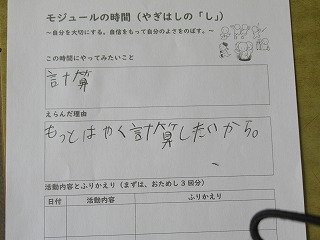 モジュールの時間（やぎはしの「し」）
～自分を大切にする。自信をもって自分のよさをのばす。～
この時間にやってみたいこと
計算
えらんだ理由
もっとはやく計算したいから。
活動内容とふりかえり（まずは、おためし３回分）
日付 活動内容 ふりかえり